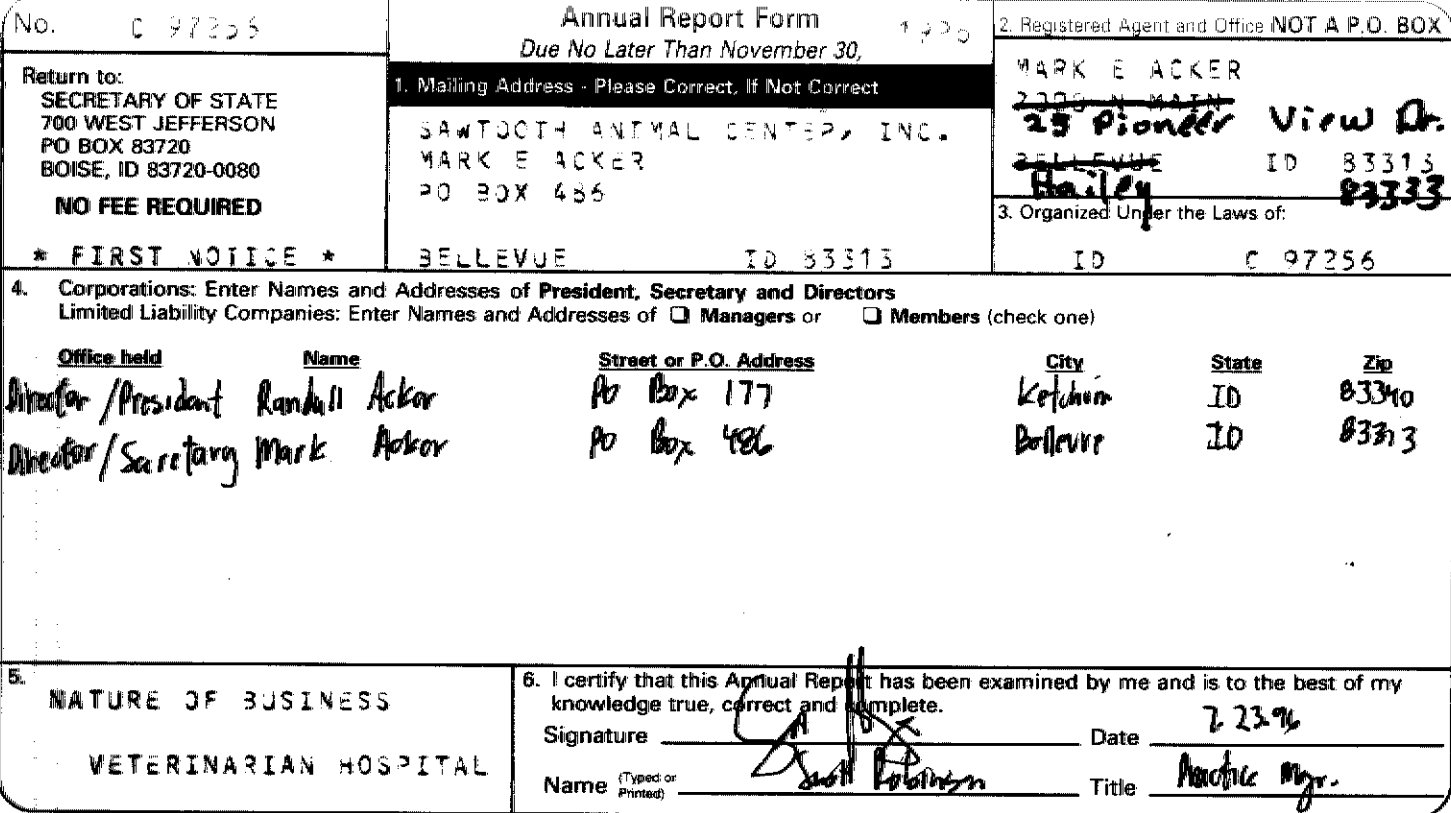 No. C 97256
Annual Report Form
Due No Later Than November 30,
Return to:
SECRETARY OF STATE
700 WEST JEFFERSON
PO BOX 83720
BOISE, ID 83720-0080
NO FEE REQUIRED
* FIRST NOTICE *
1. Mailing Address - Please Correct, If Not Correct
SAWTOOTH ANIMAL CENTER, INC.
MARK E ACKER
PO BOX 486
BELLEVUE ID 83313
2. Registered Agent and Office NOT A P.O. BOX
MARK E ACKER
N MAIN
25 Pioneer View Dr.
BELLEVUE ID 83313
Hailey 83333
3. Organized Under the Laws of:
ID C 97256
4. Corporations: Enter Names and Addresses of President, Secretary and Directors
Limited Liability Companies: Enter Names and Addresses of ❑ Managers or ❑ Members (check one)
Office held Name Street or P.O. Address City State Zip
Director/President Randall Acker PO Box 177 Ketchum ID 83340
Director/Saretary Mark Acker PO Box 486 Bellevue ID 83313
5. NATURE OF BUSINESS
VETERINARIAN HOSPITAL
6. I certify that this Annual Report has been examined by me and is to the best of my
knowledge true, correct and complete.
Signature Date 7.23.96
Name (Typed or Printed) Scott Robinson Title Practice Mgr.